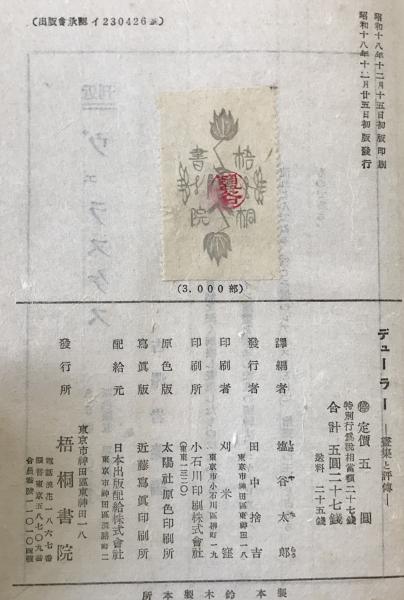 (出版會承認イ230426號)
昭和十八年十二月十五日初版印刷
昭和十八年十二月廿五日初版發行
梧桐書院
(3.000部)
デューラー ―畫集と評傳―
定價五圓
特別行爲税相當額二十七錢
合計五圓二十七錢
送料 二十五錢
譯編者 塩谷太郎
東京市神田區東神田一八
發行者 田中捨吉
東京市小石川區柳町二六
印刷者 刈米窪
印刷所 小石川印刷株式會社
(東東一三二〇)
原色版 太陽社原色印刷所
寫眞版 近藤寫眞印刷所
配給元 日本出版配給株式會社
東京市神田區淡路町二
東京市神田區東神田一八
發行所 梧桐書院
電話浪花一八六七番
振替東京五八七〇九番
會員番號一一〇一〇四號
製本 鈴木製本所